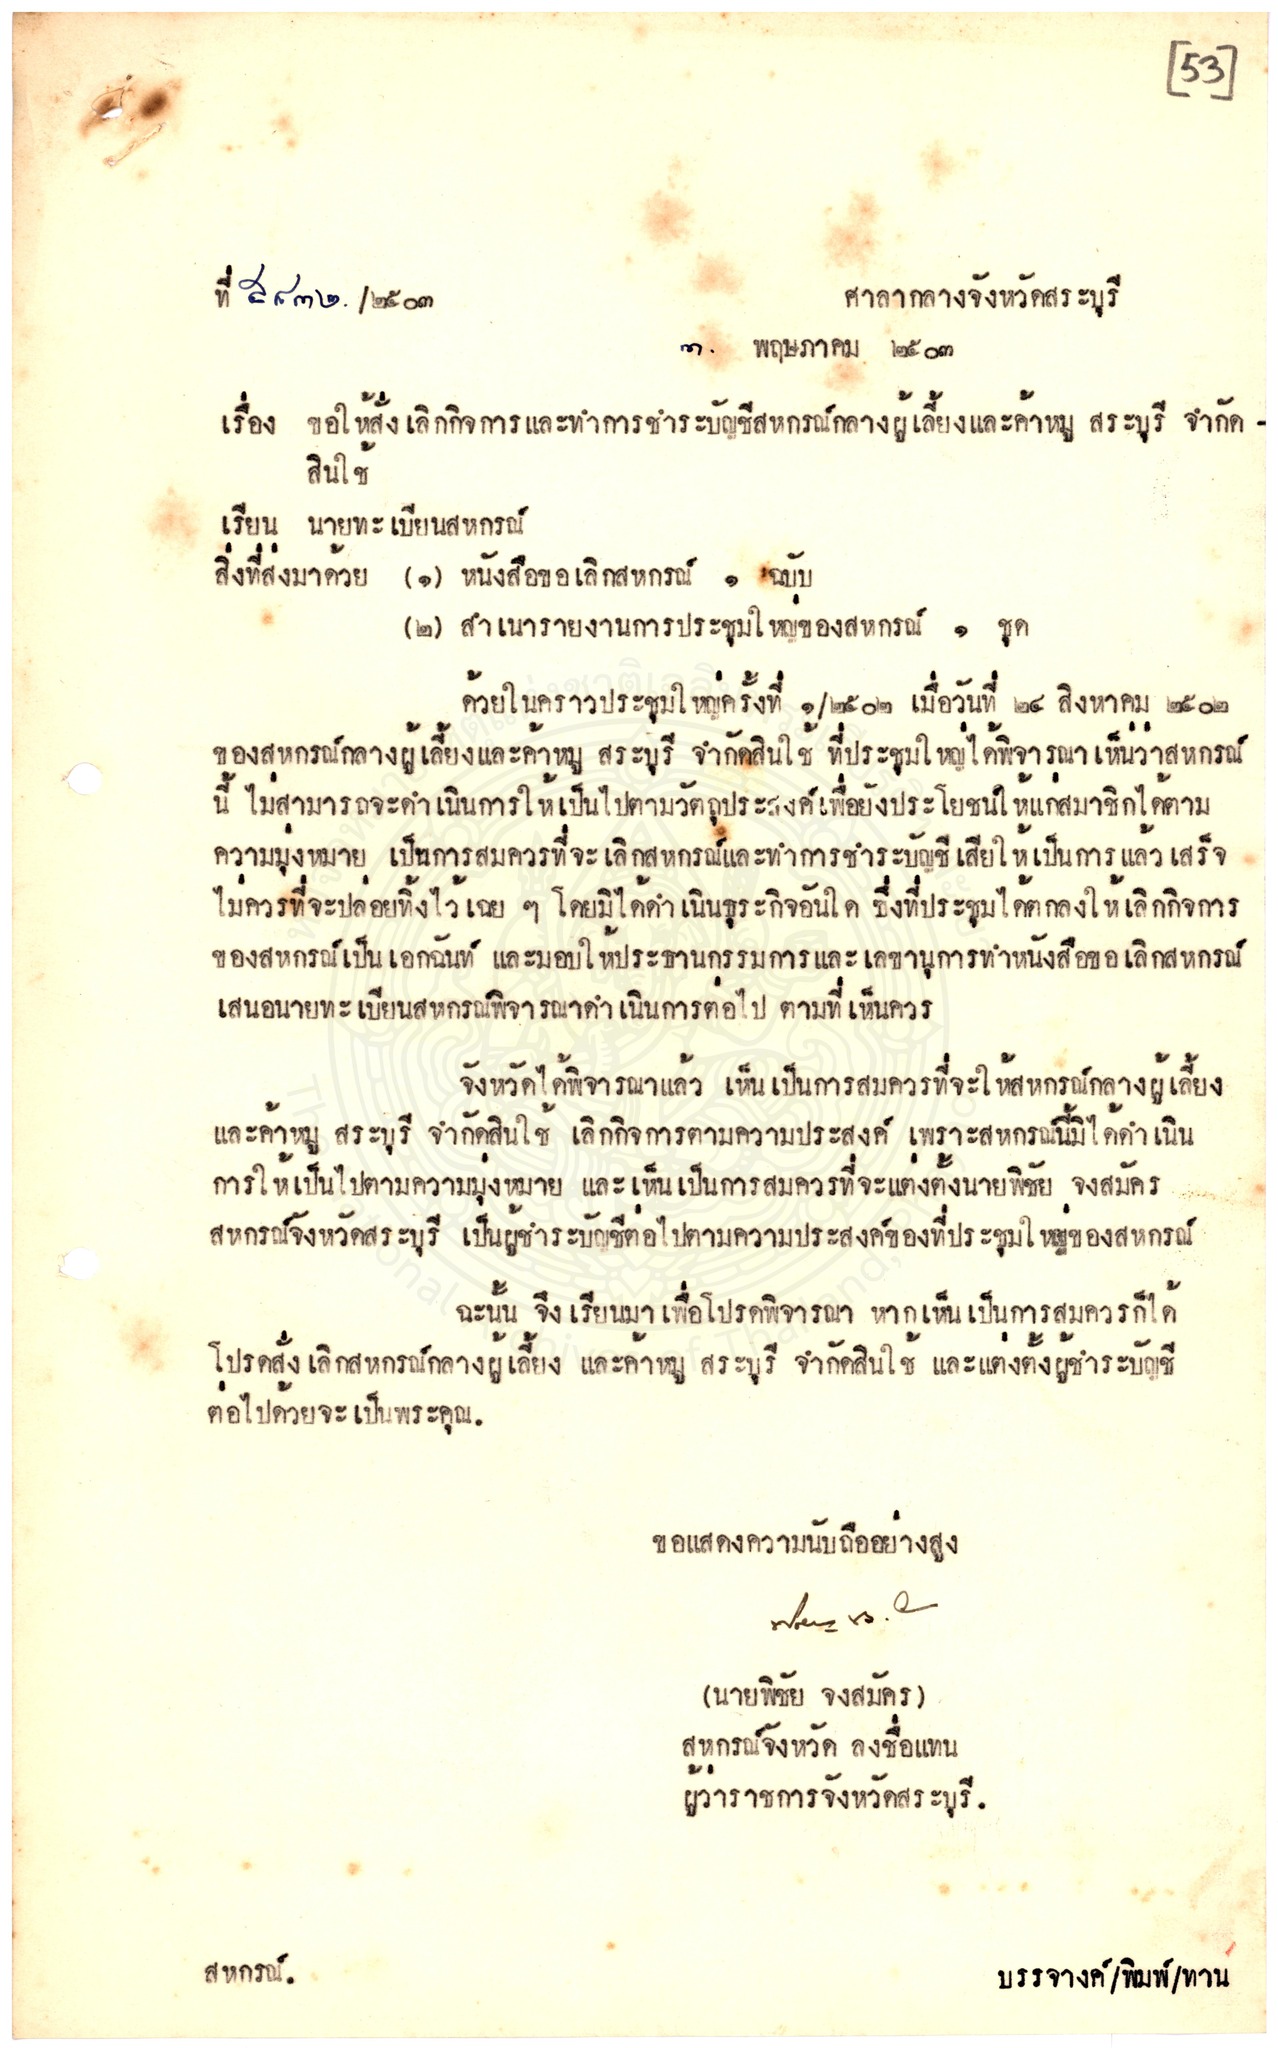 [53]
ที่ ๕๙๓๒./๒๕๐๓ ศาลากลางจังหวัดสระบุรี
๓. พฤษภาคม ๒๕๐๓
เรื่อง ขอให้สั่งเลิกกิจการและทำการชำระบัญชีสหกรณ์กลางผู้เลี้ยงและค้าหมู สระบุรี จำกัด -
สินใช้
เรียน นายทะเบียนสหกรณ์
สิ่งที่ส่งมาด้วย (๑) หนังสือขอเลิกสหกรณ์ ๑ ฉบับ
(๒) สำเนารายงานการประชุมใหญ่ของสหกรณ์ ๑ ชุด
ด้วยในคราวประชุมใหญ่ครั้งที่ ๑/๒๕๐๒ เมื่อวันที่ ๒๔ สิงหาคม ๒๕๐๒
ของสหกรณ์กลางผู้เลี้ยงและค้าหมู สระบุรี จำกัดสินใช้ ที่ประชุมใหญ่ได้พิจารณาเห็นว่าสหกรณ์
นี้ ไม่สามารถจะดำเนินการให้เป็นไปตามวัตถุประสงค์เพื่อยังประโยชน์ให้แก่สมาชิกได้ตาม
ความมุ่งหมาย เป็นการสมควรที่จะเลิกสหกรณ์และทำการชำระบัญชีเสียให้เป็นการแล้วเสร็จ
ไม่ควรที่จะปล่อยทิ้งไว้เฉย ๆ โดยมิได้ดำเนินธุระกิจอันใด ซึ่งที่ประชุมได้ตกลงให้เลิกกิจการ
ของสหกรณ์เป็นเอกฉันท์ และมอบให้ประธานกรรมการและเลขานุการทำหนังสือขอเลิกสหกรณ์
เสนอนายทะเบียนสหกรณ์พิจารณาดำเนินการต่อไป ตามที่เห็นควร
จังหวัดได้พิจารณาแล้ว เห็นเป็นการสมควรที่จะให้สหกรณ์กลางผู้เลี้ยง
และค้าหมู สระบุรี จำกัดสินใช้ เลิกกิจการตามความประสงค์ เพราะสหกรณ์นี้มิได้ดำเนิน
การให้เป็นไปตามความมุ่งหมาย และเห็นเป็นการสมควรที่จะแต่งตั้งนายพิชัย จงสมัคร
สหกรณ์จังหวัดสระบุรี เป็นผู้ชำระบัญชีต่อไปตามความประสงค์ของที่ประชุมใหญ่ของสหกรณ์
ฉะนั้น จึงเรียนมาเพื่อโปรดพิจารณา หากเห็นเป็นการสมควรก็ได้
โปรดสั่งเลิกสหกรณ์กลางผู้เลี้ยง และค้าหมู สระบุรี จำกัดสินใช้ และแต่งตั้งผู้ชำระบัญชี
ต่อไปด้วยจะเป็นพระคุณ.
ขอแสดงความนับถืออย่างสูง
(นายพิชัย จงสมัคร)
สหกรณ์จังหวัด ลงชื่อแทน
ผู้ว่าราชการจังหวัดสระบุรี.
สหกรณ์. บรรจางค์/พิมพ์/ทาน